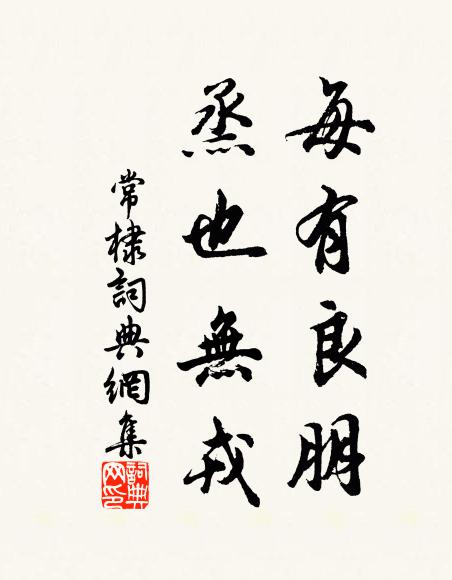 每有良朋
烝也無戎
常棣詞典網集
詞典网印